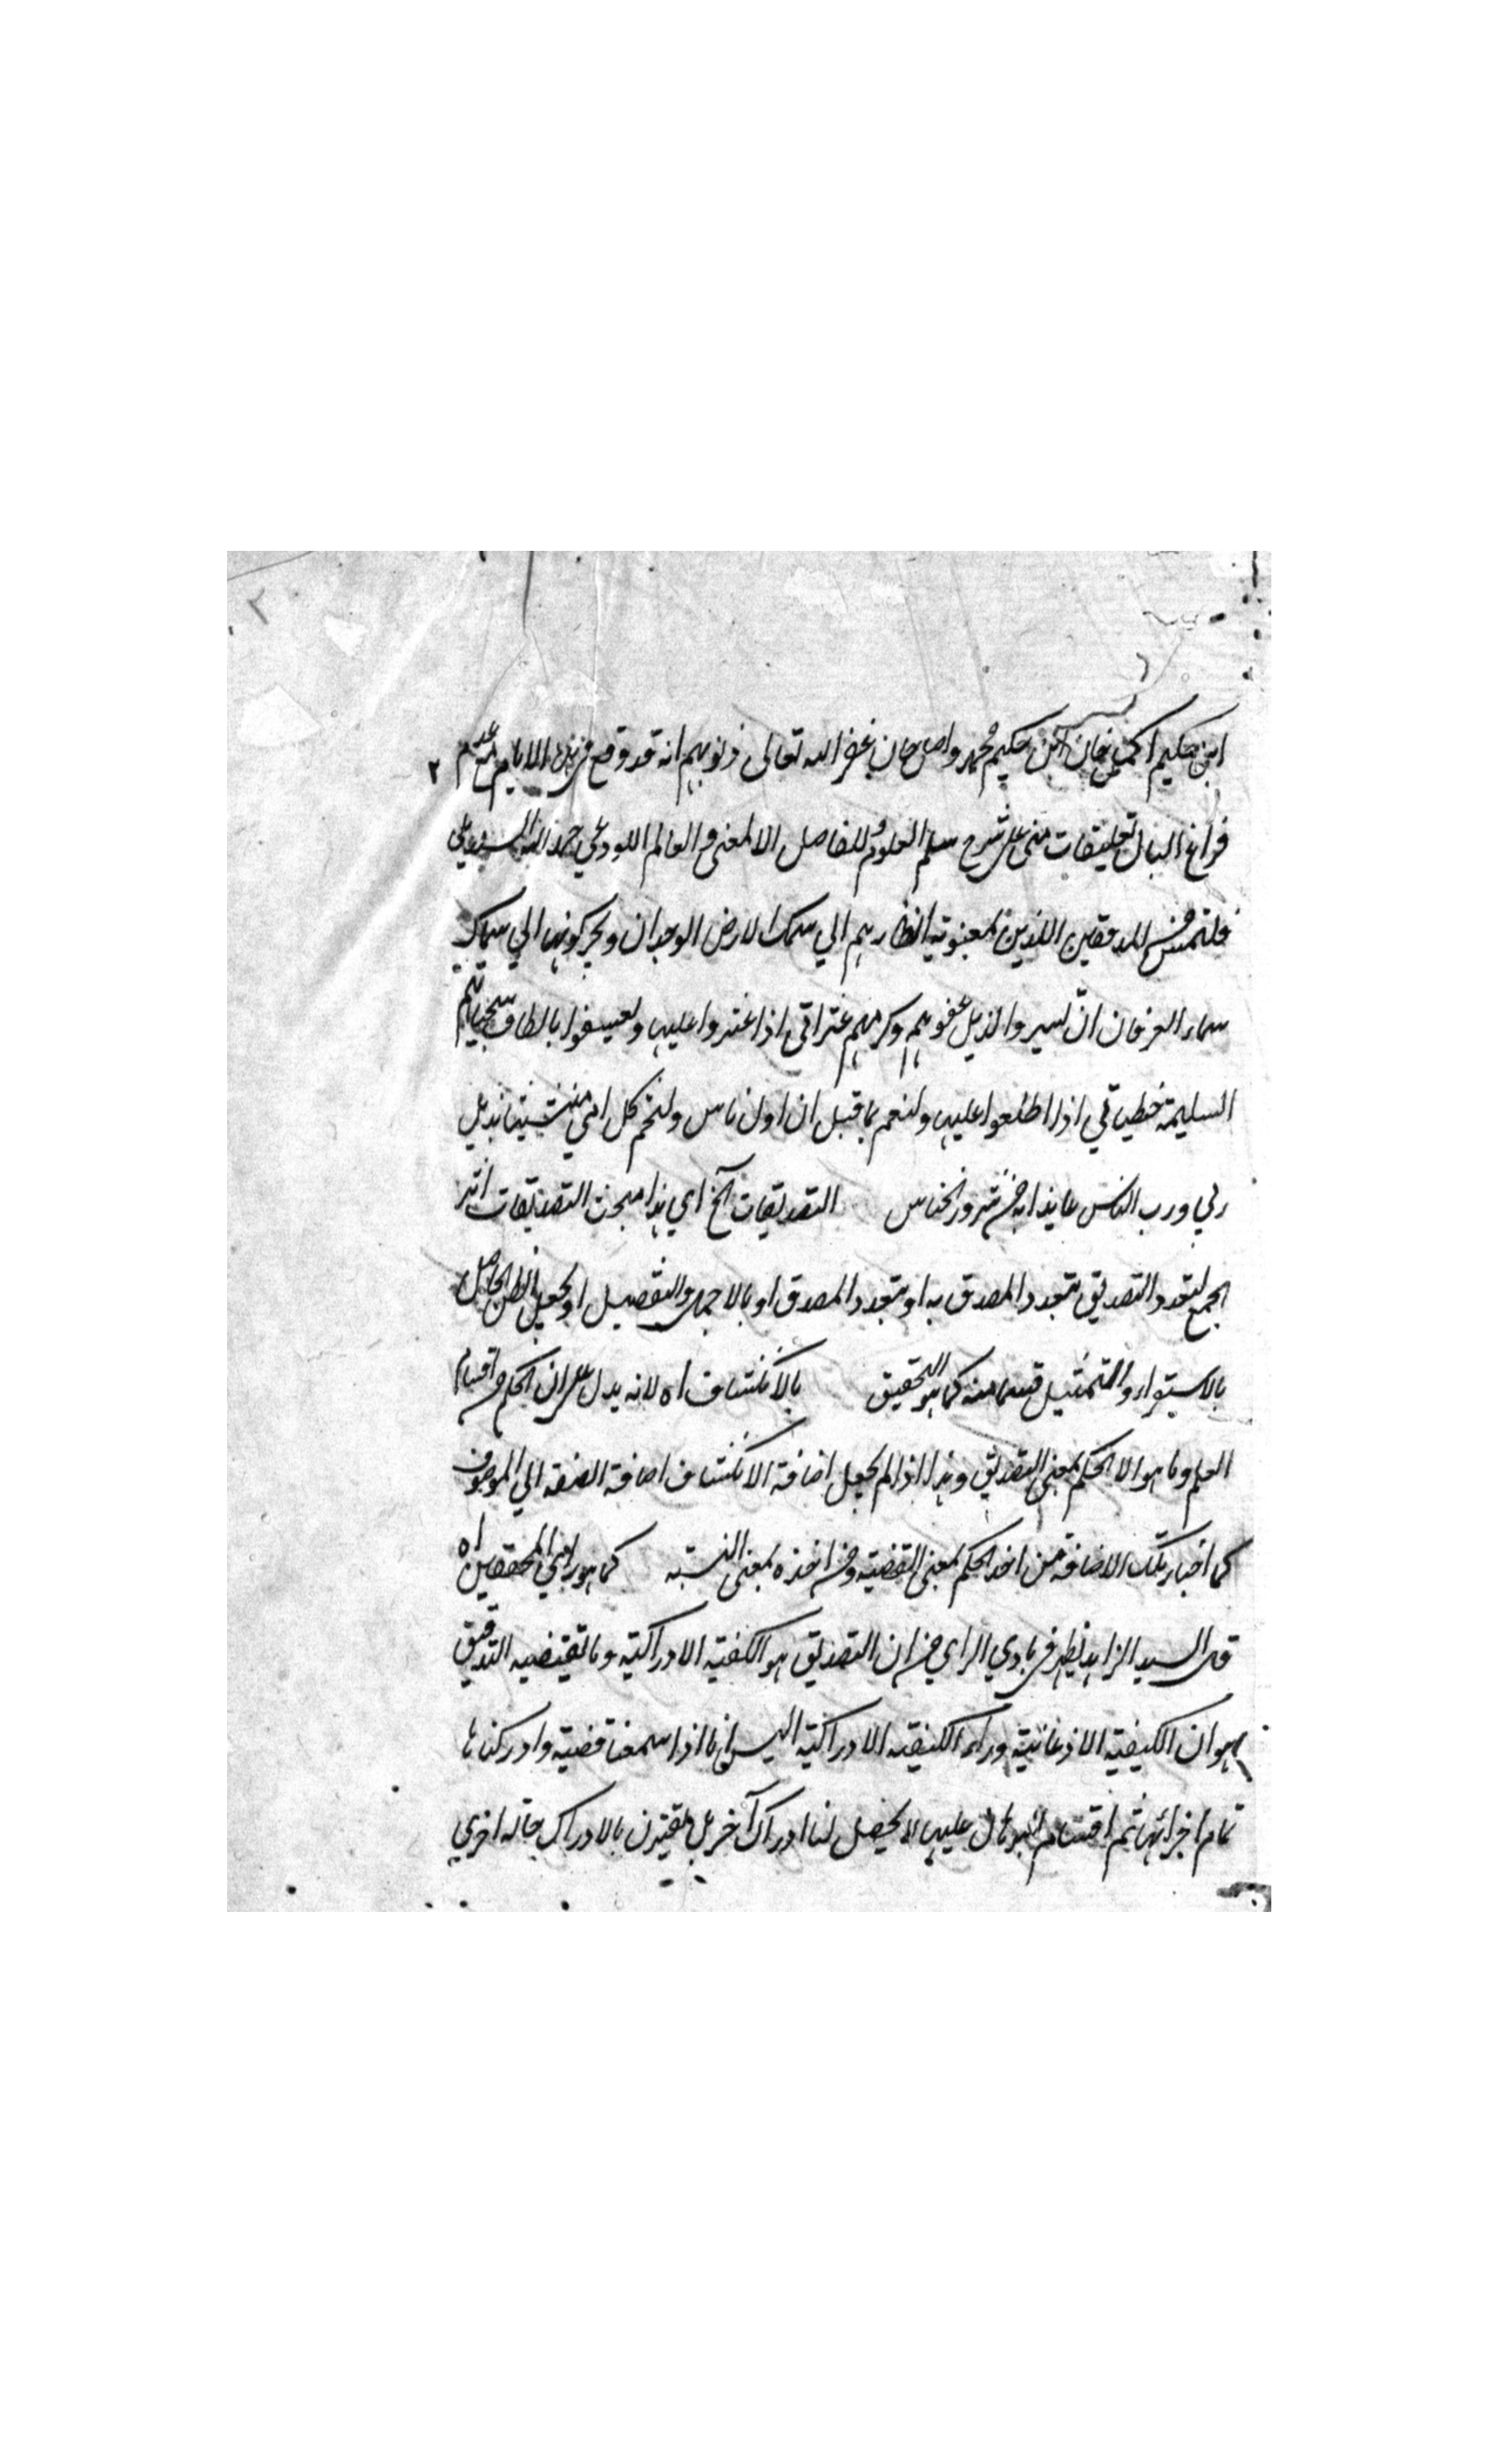 ابن حكيم اكمل خان ابن حكيم محمد واصل خان غفر الله تعالى ذنوبهم انه قد وقع في هذه الايام مع عدم
فراغ البال تعليقات مني على شرح سلم العلوم للفاضل الالمعي و العالم اللوذعي حمد الله السنديلي
فلتمس من المدققين الذين انظارهم الي سمك الارض الوجدان و الي سماك
سماء العرفان ان يسيروا بذيل عفوهم وكرمهم عثراتي اذا عثروا عليها و بالطاف سجياتهم
السليمة خطياتي اذا اطلعوا عليها ولنعم ما قيل ان اول ناس اول
ربي و رب الناس عايذا به من شرور الخناس التصديقات آلخ اي هذا مبحث التصديقات
الجمع لتعدد التصديق بتعدد المصدق به او بتعدد المصدق او بالاجمال والتفصيل او بجعل الظن الحاصل
بالاستقراء والتمثيل قسما منه كما هو التحقيق بالانكشاف اه لانه يدل على ان الحكم من اقسام
العلم وما هو الا الحكم بمعنى التصديق وهذا اذا لم يجعل اضافة الانكشاف اضافة الصفة الي الموصوف
كما اختار تلك الاضافة من اخذ الحكم بمعنى القضية ومن اخذه بمعنى النسبة كما هو راي المحققين اه
قال السيد الزاهد يظهر في بادي الراي من ان التصديق هو الكيفية الادراكية وما تقتضيه التدقيق
هو ان الكيفية الاذعانية وراء الكيفية الادراكية اليس انا اذا سمعنا قضية وادركناها
تمام اجزائها ثم اقمنا البرهان عليها لا يحصل لنا ادراك آخر بل يقترن بالادراك حالة اخري